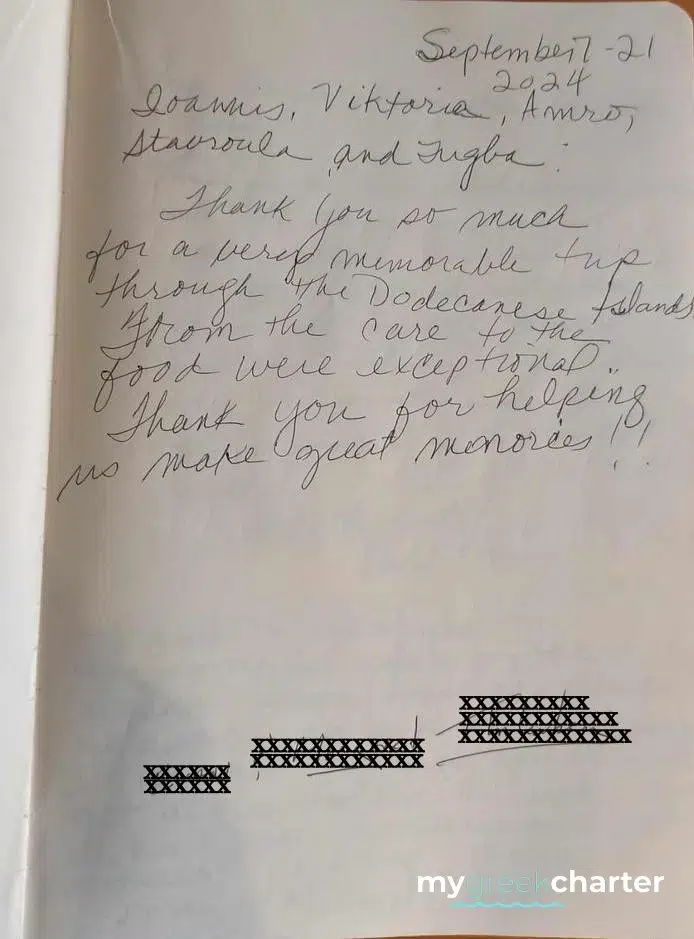 September 7-21
2024
Ioannis, Viktoria, Amro,
Stavroula and Tugba:
Thank you so much
for a very memorable trip
through the Dodecanese Islands
From the care to the
food were exceptional..
Thank you for helping
us make great memories!!
XXXXXXXXX
XXXXXXXXXXX
XXXXXXXXXXXX
XXXXXXXXXXXX
XXXXXXXXXXXX
XXXXXX
XXXXXX
mygreekcharter